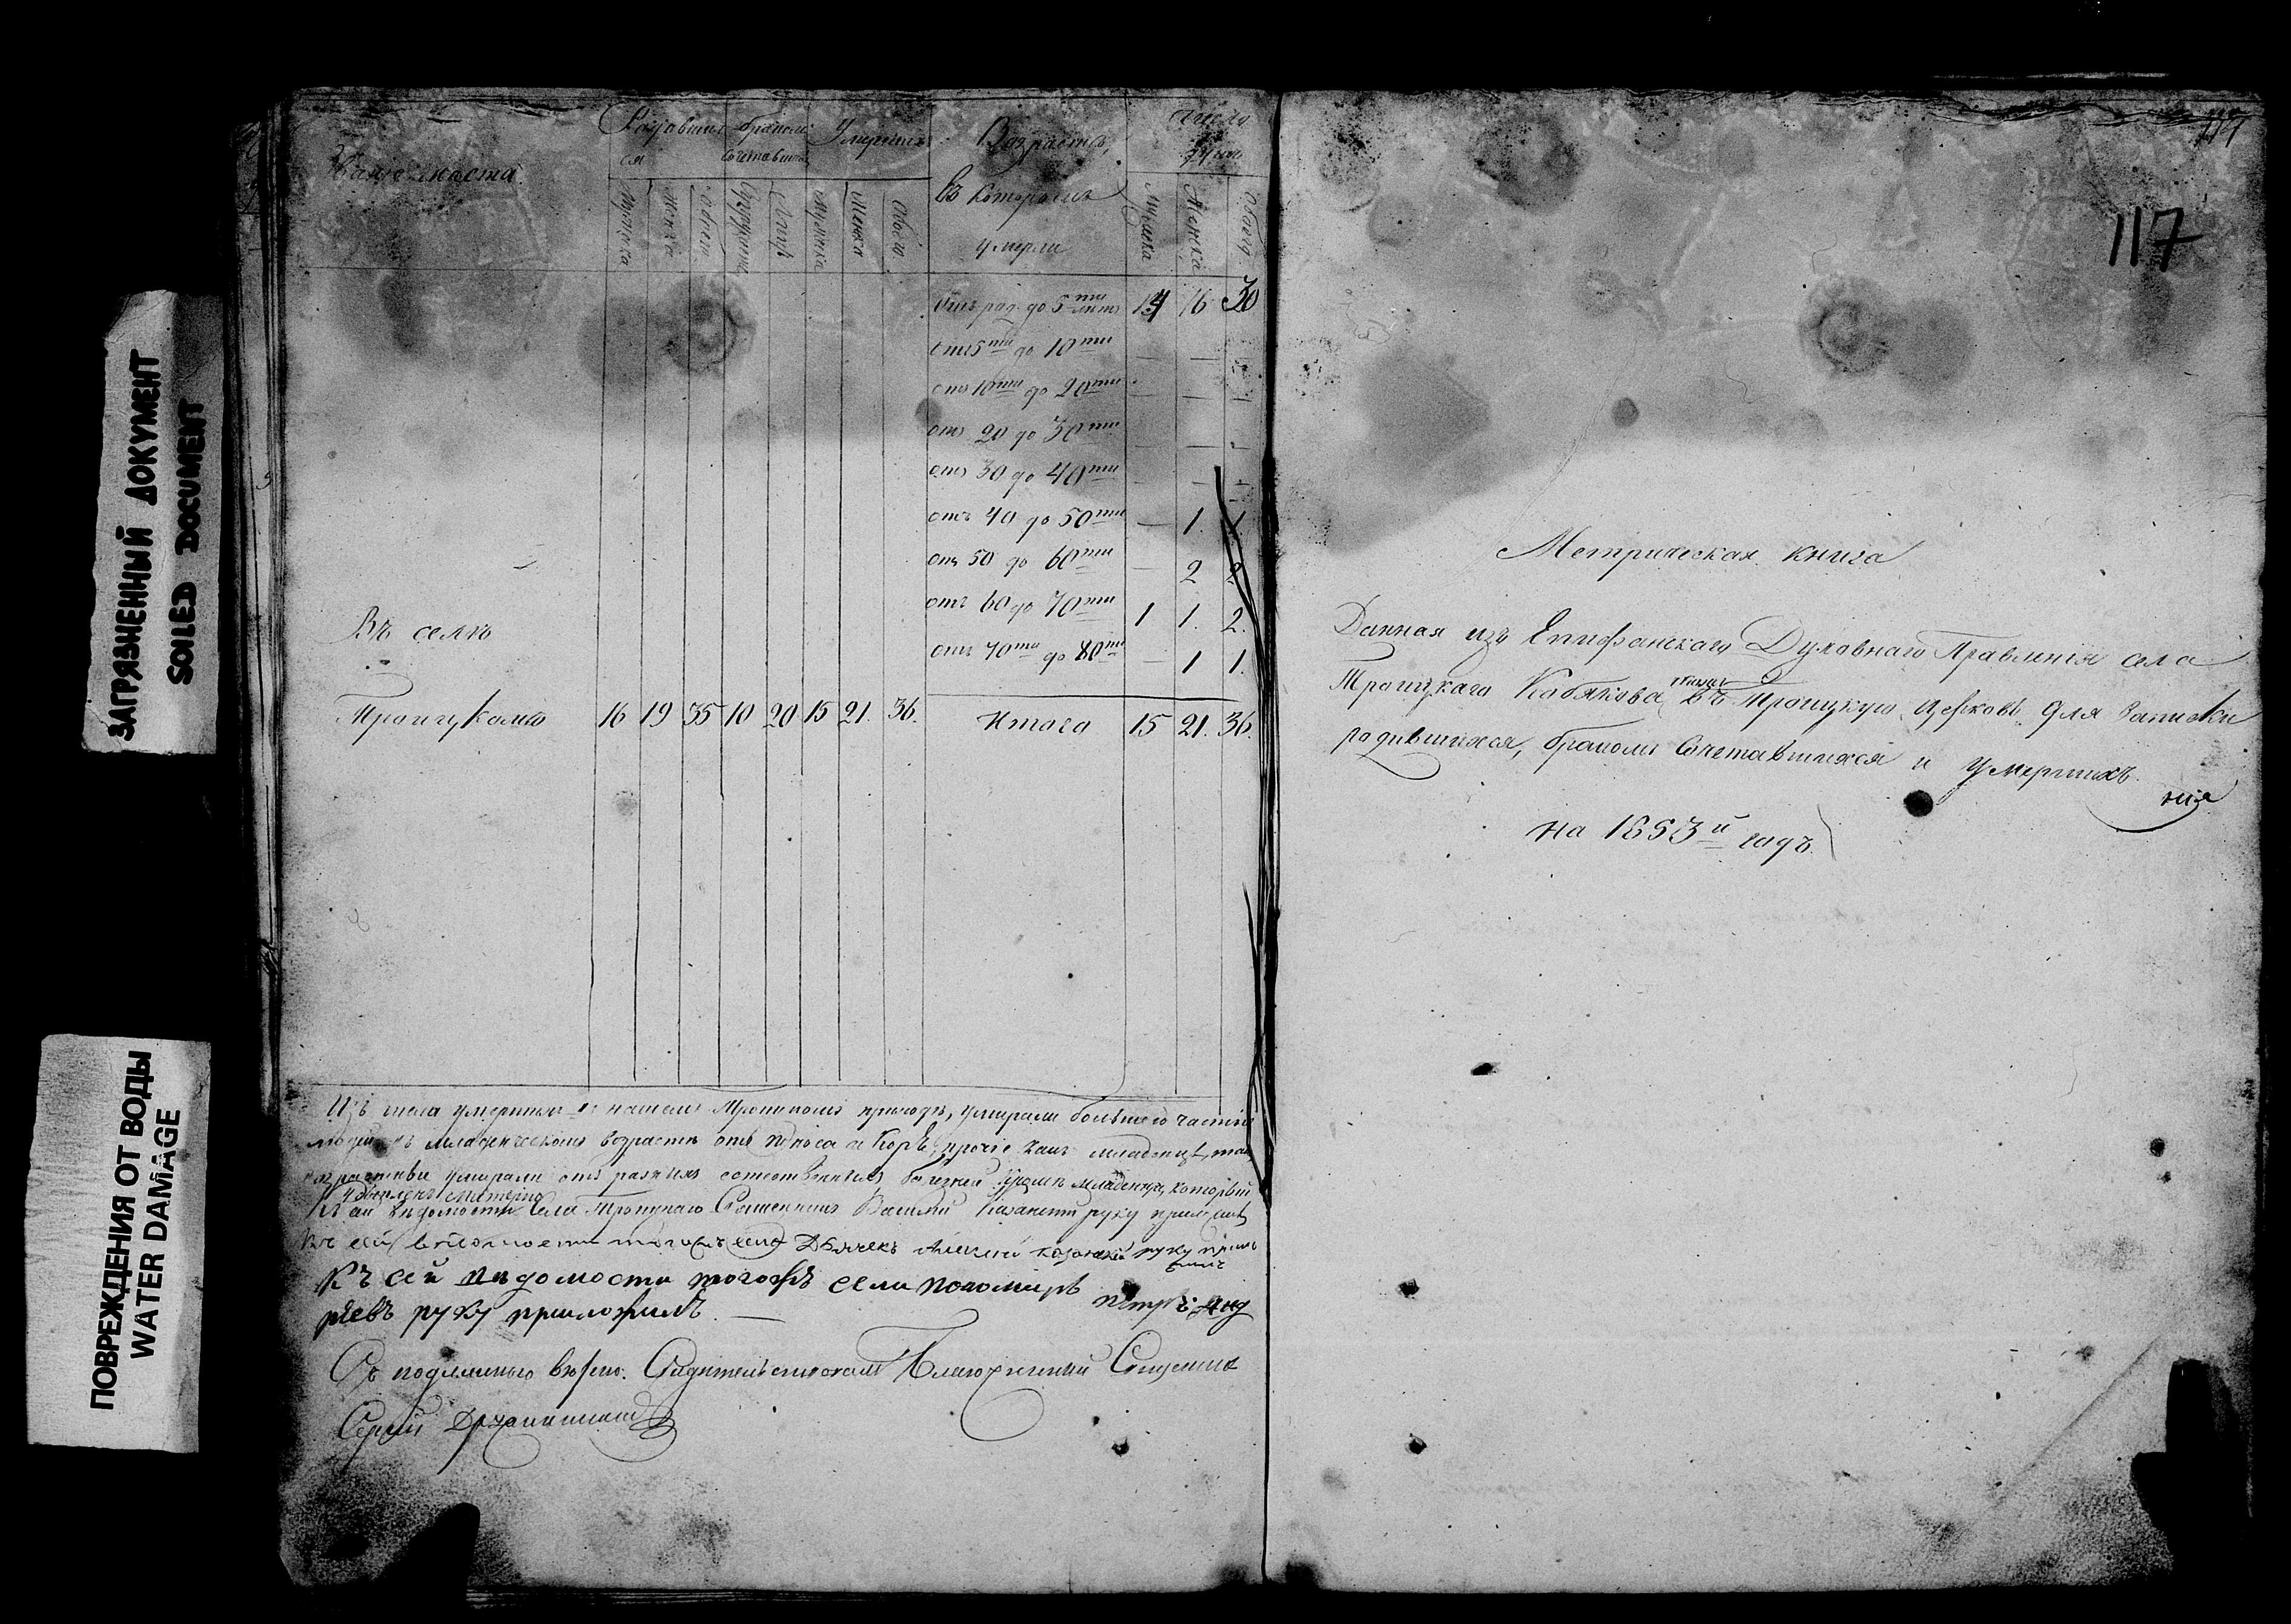 ЗАГРЯЗНЕННЫЙ ДОКУМЕНТ
SOILED DOCUMENT
ПОВРЕЖДЕНИЯ ОТ ВОДЫ
WATER DAMAGE
Званіе мѣста
Родившихся
бракомъ сочетавшихся
Умершихъ
Возрастъ,
въ которомъ
умерли
число
душъ
Мужеска Женска Обоего Супружествъ Лицъ Мужеска Женска Обоего Мужеска Женска Обоего
Отъ род. до 5ти лѣтъ 14 16 30
отъ 5ти до 10ти — — —
отъ 10ти до 20ти — — —
отъ 20 до 30ти — — —
отъ 30 до 40ти — — —
отъ 40 до 50ти — 1. 1
отъ 50 до 60ти — 2 2
отъ 60 до 70ти 1 1. 2.
отъ 70ти до 80ти — 1 1.
Въ селѣ
Троицкомъ 16 19 35 10 20 15 21. 36. Итого 15 21. 36.
Изъ числа умершихъ въ нашемъ приходѣ, умирали большею частію
въ младенческомъ возрастѣ отъ поноса и Корѣ, прочіе какъ младенцы, такъ
умирали отъ разныхъ болезней кромѣ младенца, который
матерію
Къ сей вѣдомости села Троицкаго Священникъ Василій Казанскій руку приложилъ
Къ сей вѣдомости тогожъ села Дьячекъ Алексей казанскій руку приложилъ
Къ сей вѣдомости тогожъ села пономарь петръ Анд
рѣевъ руку приложилъ. —
Съ подлиннымъ вѣрно. Свидѣтельствовалъ Благочинный Священникъ
Сергій
117
117
Метрическая книга
Данная изъ Епифанскаго Духовнаго Правленія села
Троицкаго Кобякова въ Троицкую церковь для записки
родившихся, бракомъ сочетавшихся и умершихъ.
на 1853й годъ